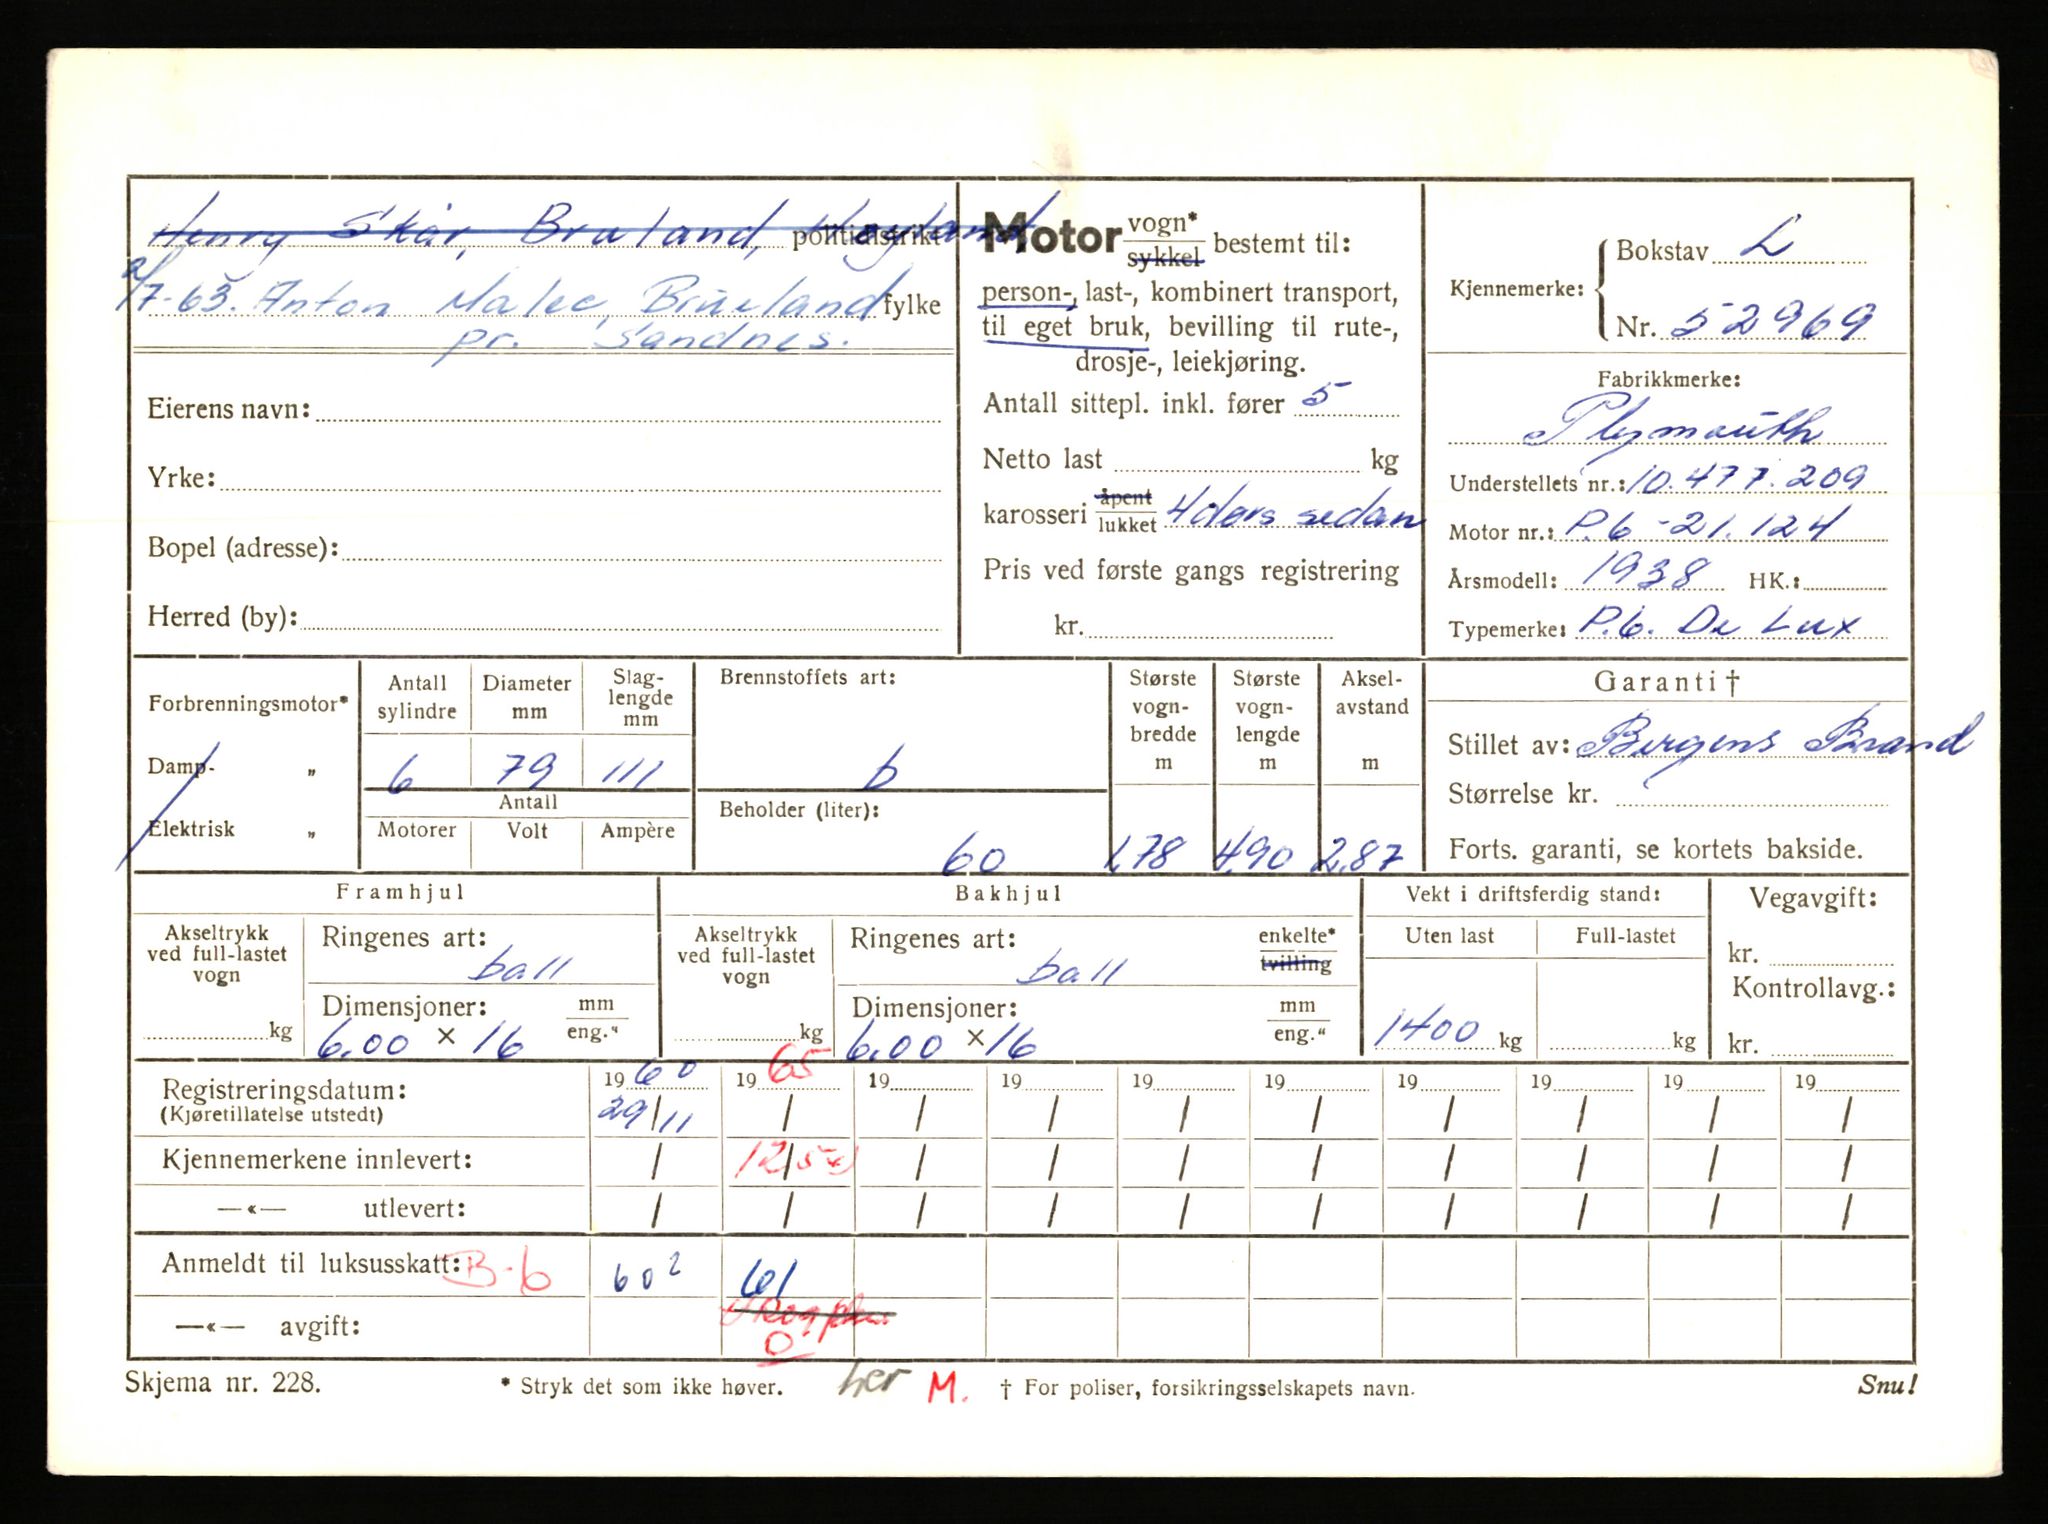 Henry Skår, Bruland, Høyland politidistrikt
/7-63. Anton Malec, Brueland fylke
pr. Sandnes.
Eierens navn:
Yrke:
Bopel (adresse):
Herred (by):
Motor vogn* sykkel bestemt til:
person-, last-, kombinert transport,
til eget bruk, bevilling til rute-,
drosje-, leiekjøring.
Antall sittepl. inkl. fører 5
Netto last kg
karosseri åpent lukket 4dørs sedan
Pris ved første gangs registrering
kr.
Kjennemerke: Bokstav L
Nr. 52969
Fabrikkmerke:
Plymouth
Understellets nr.: 10.477.209
Motor nr.: P.6-21.124
Årsmodell: 1938 HK.:
Typemerke: P.6. De Lux
Forbrenningsmotor*
Damp- „
Elektrisk „
Antall sylindre
6
Diameter mm
79
Slag-lengde mm
111
Antall
Motorer Volt Ampère
Brennstoffets art:
b
Beholder (liter):
60
Største vogn-bredde m
1,78
Største vogn-lengde m
4,90
Aksel-avstand m
2,87
Garanti †
Stillet av: Bergens Brand
Størrelse kr.
Forts. garanti, se kortets bakside.
Framhjul
Akseltrykk ved full-lastet vogn
kg
Ringenes art:
ball
Dimensjoner: mm eng."
6.00 × 16
Bakhjul
Akseltrykk ved full-lastet vogn
kg
Ringenes art: enkelte* tvilling
ball
Dimensjoner: mm eng."
6.00 × 16
Vekt i driftsferdig stand:
Uten last Full-lastet
1400 kg kg
Vegavgift:
kr.
Kontrollavg.:
kr.
Registreringsdatum: 1960 1965 19 19 19 19 19 19 19 19
(Kjøretillatelse utstedt) 29/11 / / / / / / / / /
Kjennemerkene innlevert: / 12/5 / / / / / / / /
—«— utlevert: / / / / / / / / / /
Anmeldt til luksusskatt: B-6 60² 61
—«— avgift:
0
Skjema nr. 228. * Stryk det som ikke høver. her M. † For poliser, forsikringsselskapets navn. Snu!